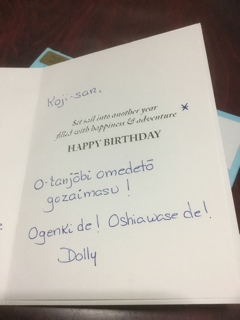 Koji-san,
Set sail into another year
filled with happiness & adventure *
HAPPY BIRTHDAY
O-tanjōbi omedetō
gozaimasu!
Ogenki de! Oshiawase de!
Dolly